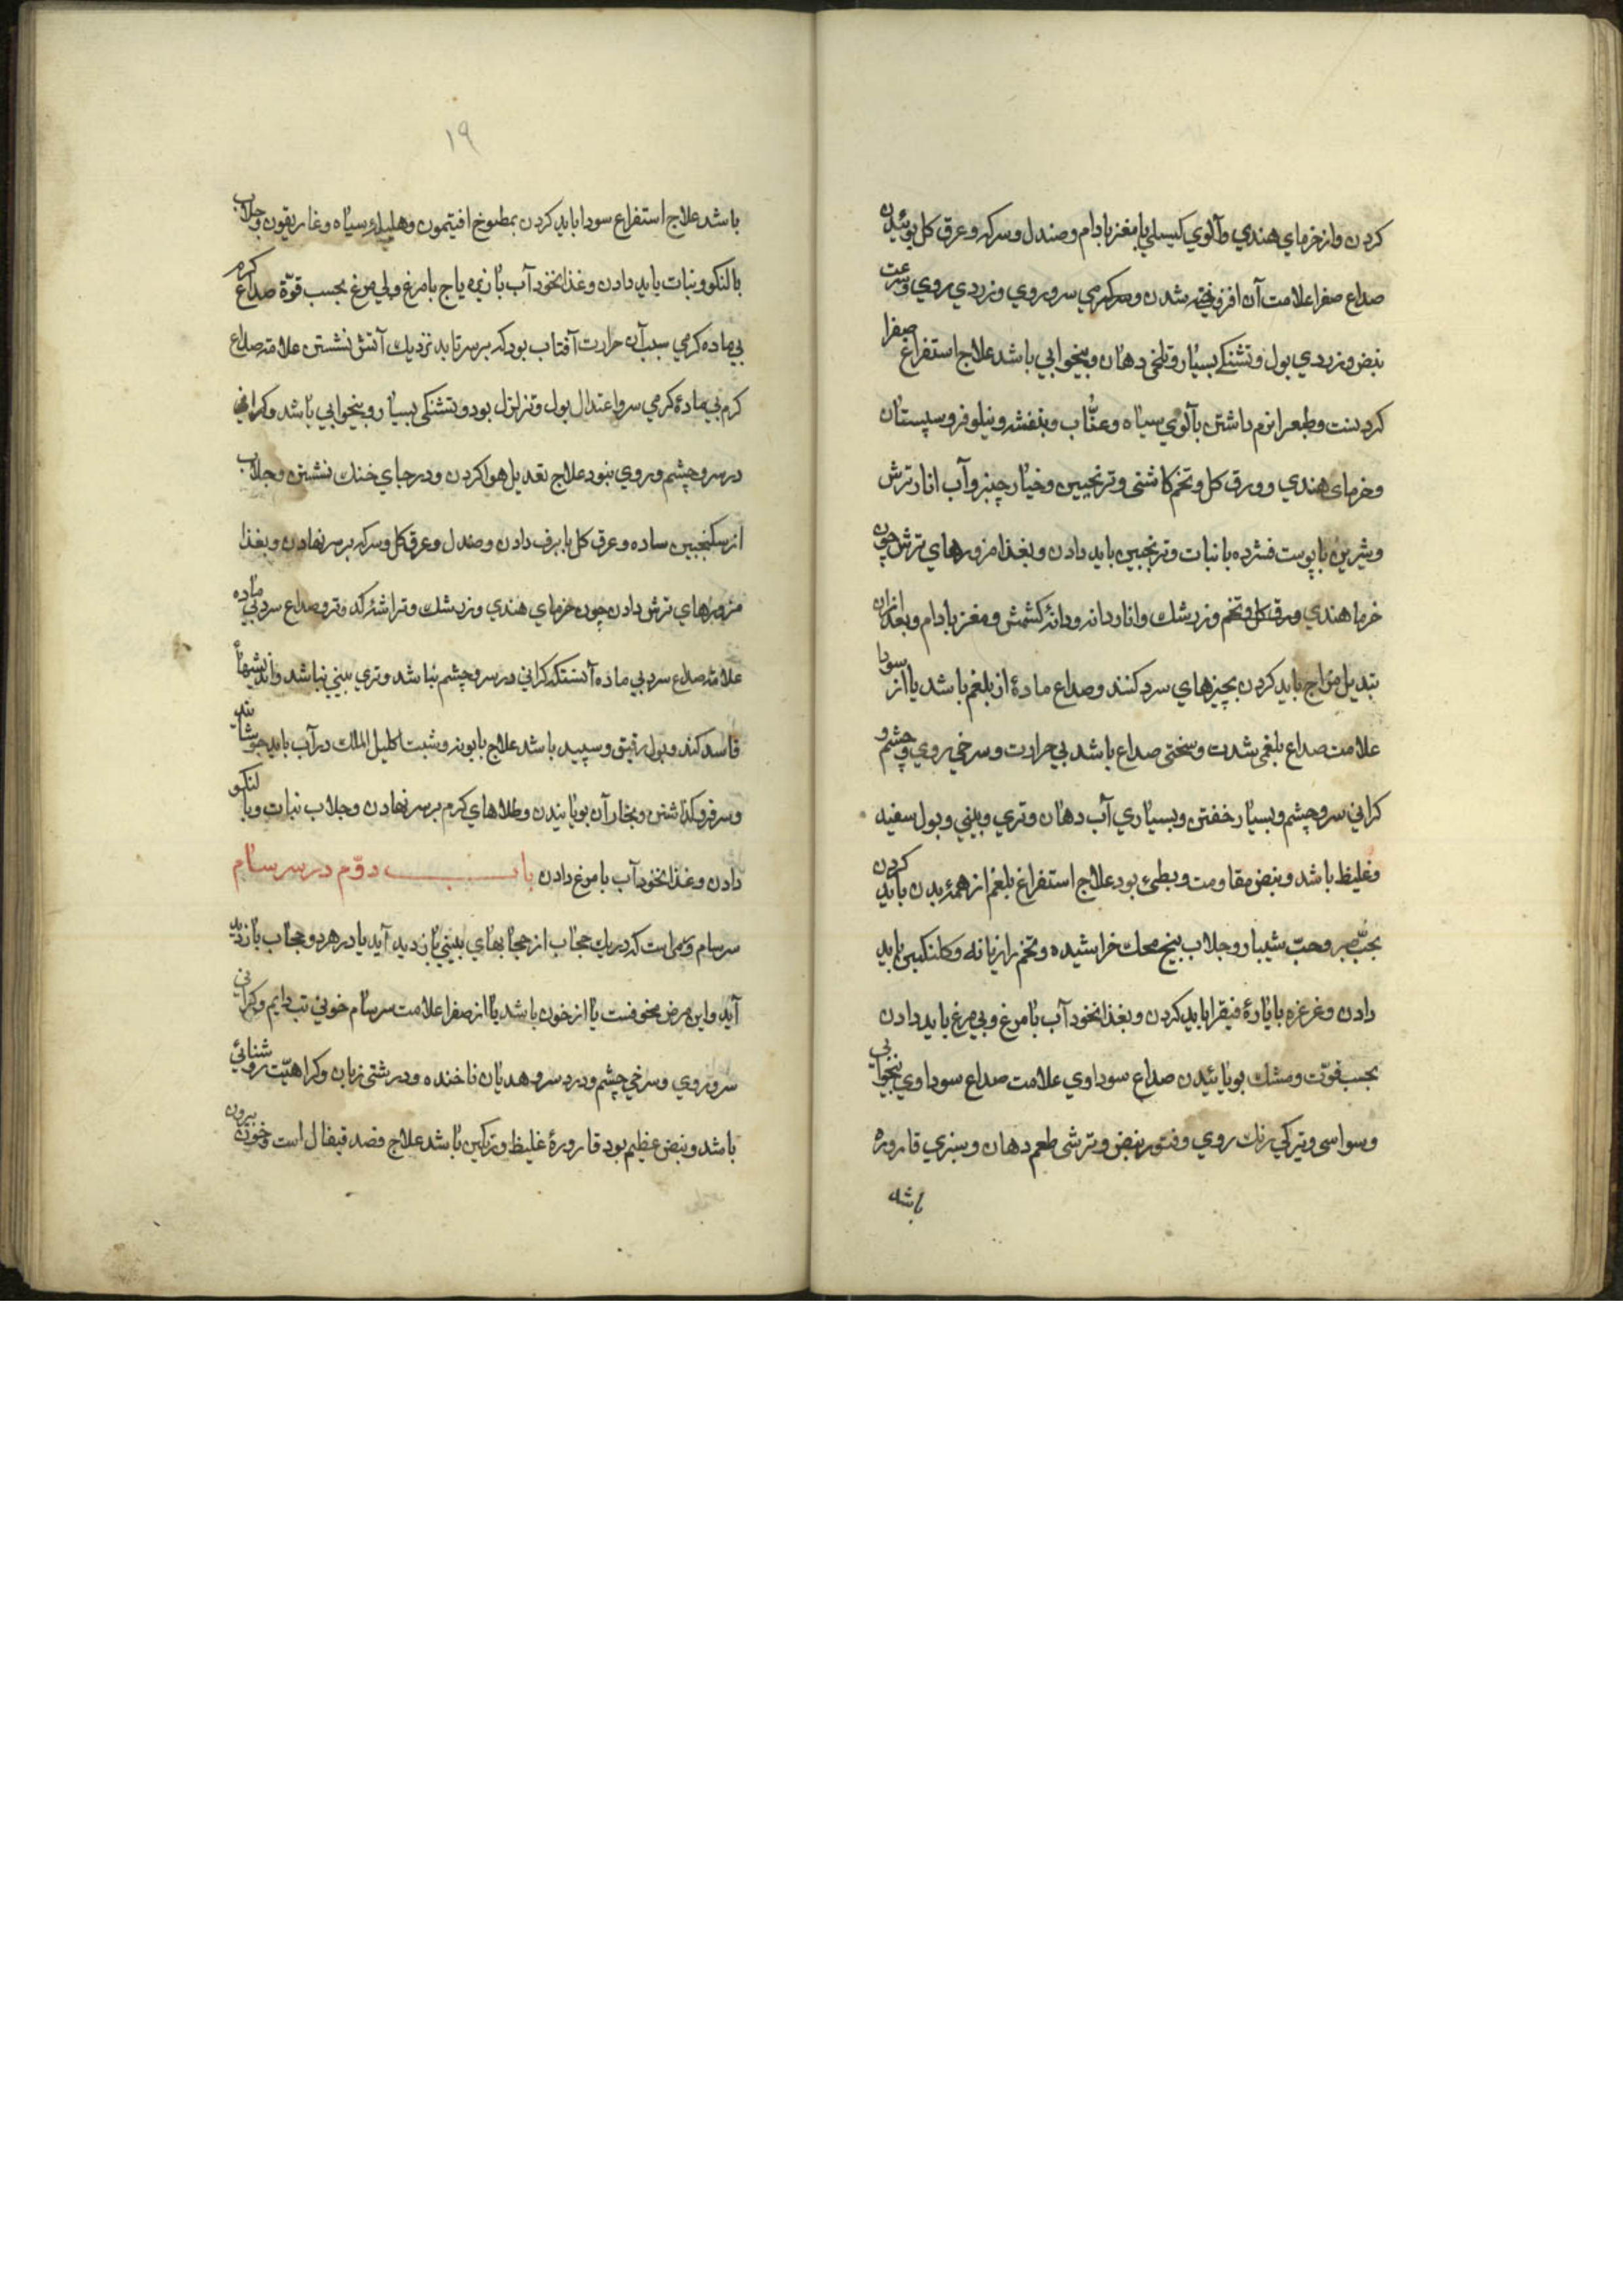 كردن واز خرماي هندي وآلوي كيسلي با مغز بادام وصندل وسركه وعرق كل بوئيدن
صداع صفرا علامت آن افروخته شدن وسركرمي سر وروي وزردي روي وسرعت
نبض وزردي بول وتشنكي بسيار وتلخي دهان وبيخوابي باشد علاج استفراغ صفرا
كردنست وطبع را نرم داشتن بآلوي سياه وعنّاب وبنفشه ونيلوفر وسپستان
وخرماي هندي وورق كل وتخم كاشني وترنجبين وخيار چنبر وآب انار ترش
وشيرين با پوست فشرده با نبات وترنجبين بايد دادن وبغذا مزورهاي ترش چون
خرما هندي وورق كل وتخم وزرشك وانار دانه ودانۀ كشمش ومغز بادام وبعد ازان
تبديل مزاج بايد كردن بچيزهاي سرد كنند وصداع مادۀ از بلغم باشد يا از سودا
علامت صداع بلغمي شدت وسختي صداع باشد بي حرارت وسرخي روي وچشم و
كراني سر وچشم وبسيار خفتن وبسياري آب دهان وتري وبيني وبول سفيد
وغليظ باشد ونبض مقاومت وبطئ بود علاج استفراغ بلغم از همۀ بدن بايد كردن
بحبّ صبر وحبّ شيبار وجلاب بيخ محك خراشيده وتخم رازيانه وكلنكبين بايد
دادن وغرغره بايارۀ فيقرا بايد كردن وبغذا نخود آب با مرغ وبي مرغ بايد دادن
بحسب قوّت ومشك بويائيدن صداع سوداوي علامت صداع سوداوي بيخوابي
وسواسي وتيركي رنك روي وفتور نبض وترشي طعم دهان وسبزي قاروره
باشد
١٩
باشد علاج استفراغ سودا بايد كردن بمطبوخ افتيمون وهليلۀ سياه وغاريقون وجلاب
بالنكو ونبات بايد دادن وغذا نخود آب با زيره ياج با مرغ وبي مرغ بحسب قوّة صداع كرم
بي ماده كرمي سبب آن حرارت آفتاب بود كه بر سر تابد نزديك آتش نشستن علامت صداع
كرم بي مادۀ كرمي سر واعتدال بول وتزلزل بود وتشنكي بسيار وبيخوابي باشد وكراني
در سر وچشم وروي نبود علاج تعديل هوا كردن ودر جاي خنك نشستن وجلاب
از سكنجبين ساده وعرق كل با برف دادن وصندل وعرق كل وسركه بر سر نهادن وبغذا
مزورهاي ترش دادن چون خرماي هندي وزرشك وتراشۀ كدو تر وصداع سرد بي ماده
علامت صداع سرد بي ماده آنستكه كراني در سر وچشم نباشد وتري بيني نباشد وانديشهاء
فاسد كند وبول رقيق وسپيد باشد علاج بابونه وشبت اكليل الملك در آب بايد جوشانيد
وسر فرو كذاشتن وبخار آن بويانيدن وطلاهاي كرم بر سر نهادن وجلاب نبات وبالنكو
دادن وغذا نخود آب با مرغ دادن باب دوّم در سرسام
سرسام ورمي است كه در يك حجاب از حجابهاي بيني بازديد آيد يا در هر دو حجاب بازديد
آيد واين مرض مخوفست يا از خون باشد يا از صفرا علامت سرسام خوني تب دايم وكراني
سر وروي وسرخي چشم ودرد سر وهديان ناخنده ودرشتي زبان وكراهيّت روشنائي
باشد ونبض عظيم بود قارورۀ غليظ ورنكين باشد علاج فصد قيفال است وخون بيرون